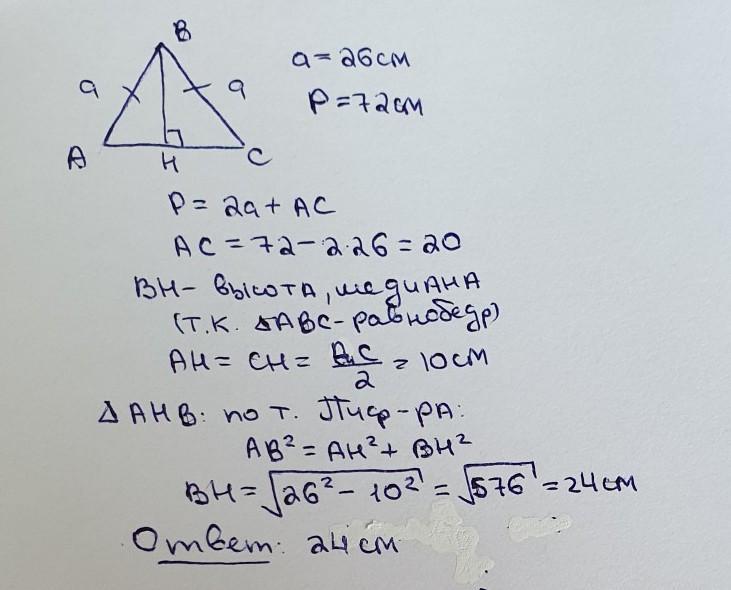 B
a = 26 см
a a
P = 72 см
A H C
P = 2a + AC
AC = 72 - 2·26 = 20
BH - высота, медиана
(т.к. ΔABC - равнобедр)
AH = CH = AC/2 = 10 см
Δ AHB: по т. Пиф-ра:
AB² = AH² + BH²
BH = √26² - 10² = √576 = 24 см
Ответ: 24 см